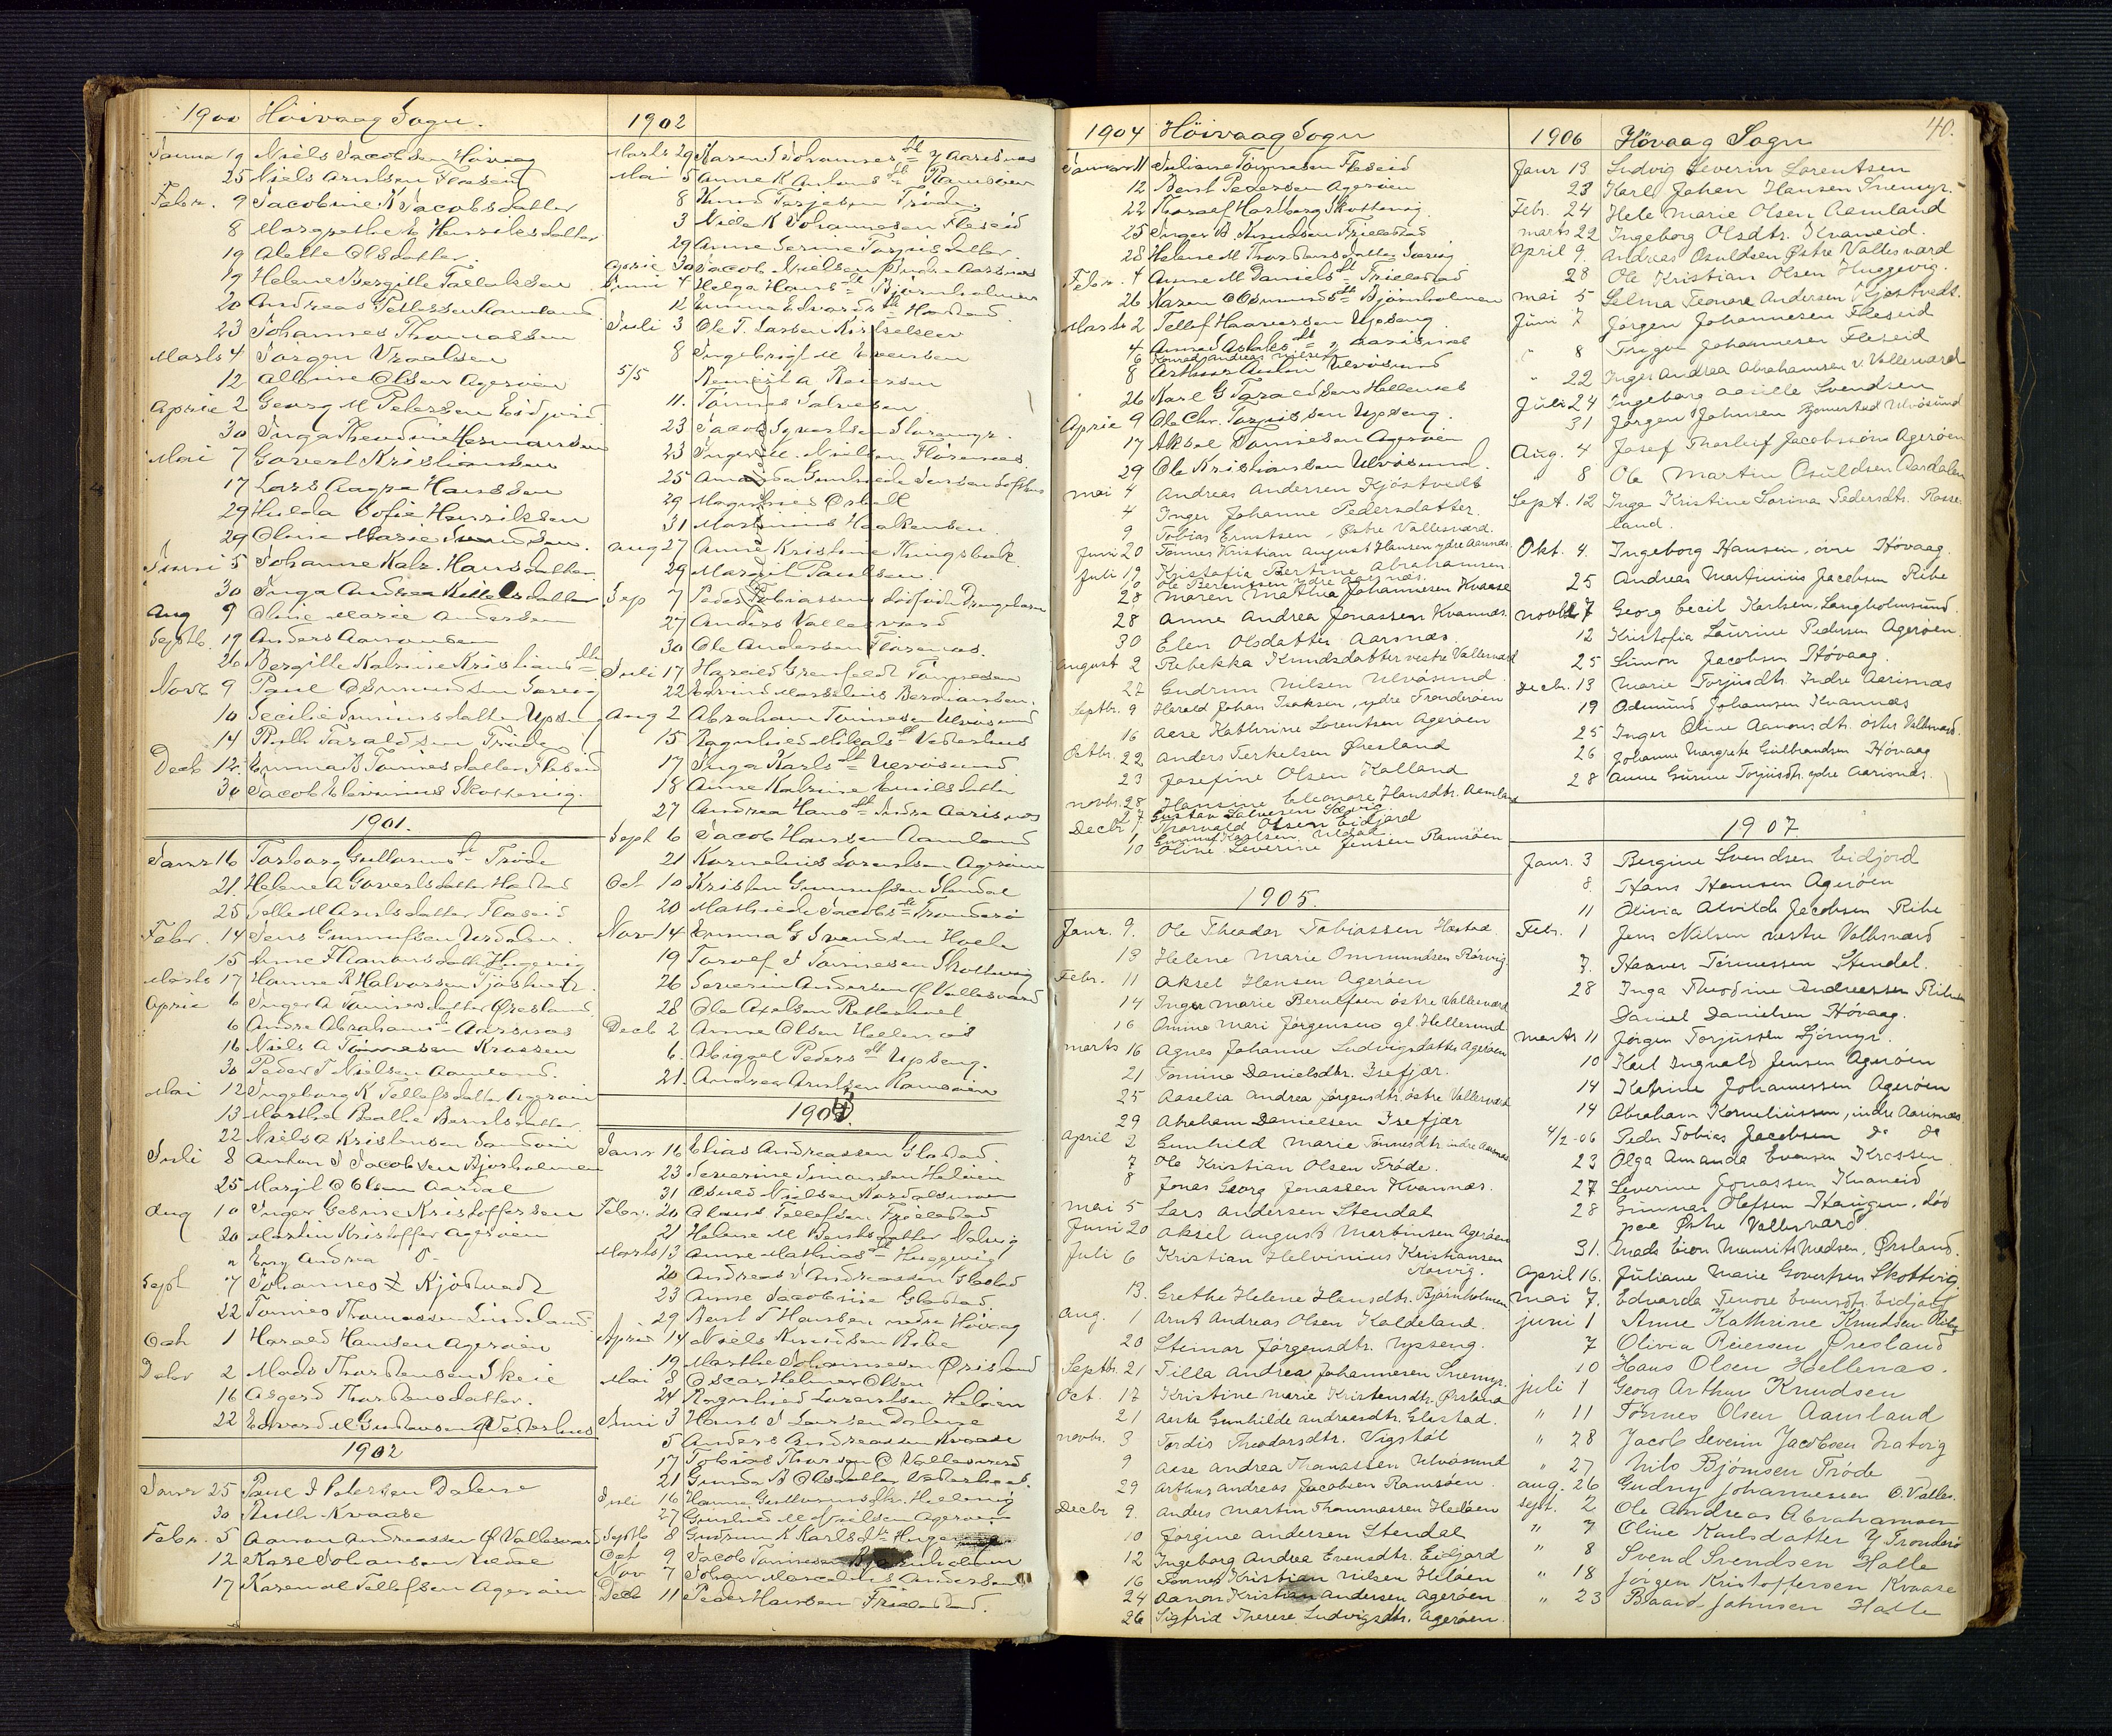 1900 Höivaag Sogn.
Janua 19 Niels Jacobsen Hövaag
25 Niels Arntsen Fleseid
Febr. 9 Jacobine K Jacobsdatter
8 Margrethe E Henriksdatter
19 Alette Olsdatter.
19 Helene Bergitte Tallaksen
20 Andreas Pettersen Aamland
23 Johannes Thomassen
Marts 4 Jørgen Vraalsen
12 Albine Olsen Agerøien
Aprie 2 Georg M Petersen Eidjord
30 Inga Theodine Hermansen
Mai 7 Govert Kristiansen
17 Lars Aagre Hanssen
29 Hulda Sofie Henriksen
29 Oline Marie Svendsen.
Juni 5 Johanne Katr. Hansdatter
30 Inga Andrea Kittelsdatter
Aug 9 Oline Marie Andersen
Septb. 19 Anders Aanonsen
26 Bergitte Katrine Kristiansdtt
Novb 9 Paul Osmundsen Sørvig
10 Secilie Simonsdatter Upseng
14 Ruth Taraldsen Trøde
Decb 12. Emma B Tønnesdatter Fleseid
30 Jacob Elevinius Skottevig.
1901.
Janr 16 Torborg Guttormsdt Trøde
21. Helene A Govertsdatter Hæstad
25 Jelle M Arntsdatter Fleseid
Febr. 14 Jens Gunnufsen Urdalen.
15 Anne F Aanonsdatter Hugevig
Marts 17 Hanne R Halvorsen Kjøstvedt.
Aprie 6 Inger A Tønnesdatter Øresland
6 Andrea Abrahamsdt Aarsnæs
16 Niels A Tönnesen Krossen
30 Peder T Nielsen Aamland.
Mai 12 Ingeborg K Tellefsdatter Agerøien
13 Marthea Beathe Berntsdatter.
22 Niels A Kristensen Sandøien
Juli 8 Anton J Jacobsen Bjønholmen
25 Margit O Olsen Aardal
Aug 10 Inger Gesine Kristoffersen
20 Martin Kristoffer Agerøien
" Emy Andrea
Sept 7 Johannes Kjøstvedt
22 Tønnes Thomassen Lindeland.
Octb 1 Harald Hansen Agerøien
Debr 2 Mads Thordensen Skeie
16 Asgerd Thordensdatter.
22 Edvard M Gundersen Vesterhus
1902
Janr 25 Paul J Petersen Dalene
30 Ruth Kvaase
Febr. 5 Aanon Andreassen Ø Vallesværd
12 Kare Johansen
17 Karen M Tellefsen Agerøien
1902
Marts 29 Karen J Johannesdt y Aarisnæs
Mai 5 Anne K Antonsdt Ramsøien
8 Knud Terjesen Trøde.
3 Nils K Johannesen Fleseid
29 Anne Serine Torjusdatter
Aprie 30 Jacob Nielsen Indre Aarsnæs
Juni 4 Helga Hansdt Bjørnholmen
12 Emma Edvardsdt Hæstad.
Juli 3 Ole T. Larsen
8 Ingebrigt M Evensen
5/5 Bernt A Reiersen
11. Tönnes Salvesen
23 Jacob Syvertsen Snemyr.
23 Inger M. Nielsen Flörenes
25 Amanda Gunhilde Jensen Lofthus
29 Magnhild
31 Martinius Haakensen
Aug 27 Anne Kristine Kungsbak
29 Margit Paulsen.
Sep 7 Peder Tobiassen
27 Anders Vallesværd
30 Ole Andersen Flörenes.
Juli 17 Harald Grenfeldt Tönnesen
22 Edvind Marselius Bentsen.
Aug 2 Abraham Tönnesen Ulvösund
15 Ragnhild Mikalsdt Vesterhus
17 Inga Karlsdt Ulvösund.
18 Anne Katrine Emilsdatter
27 Andrea Hansdt Indre Aarisnæs
Sept 6 Jacob Hansen Aamland
21 Kornelius Lorentsen Agerøien
Oct 10 Kristen Gunnufsen Stendal
20 Mathilde Jacobsdt Trønderö
Nov 14 Emma G Svendsen Halle
19 Torvef J Tönnesen Skottevig
26 Severin Andersen Ø Vallesværd
28 Ole Axelsen
Decb 2 Anne Olsen Hellenæs
6. Abigael Pedersdtt Upseng.
21. Andrea Arntsen Ramsøien
1903.
Janr 16 Elias Andreassen Glastad.
23 Severine Simonsen Heløien
31 Osuld Nielsen
Febr. 20 Olaus Tellefsen Frielestad
21 Helene M Berntsdatter
Marts 13 Anne Mathiasdt Huggevig
20 Andreas J Andreassen Glastad
23 Anne Jacobine Glastad
29 Bernt T Hansen nedre Höivaag
April 14 Niels Knudsen Ribe
19 Marthe Johannesen Öresland
Mai 8 Oscar Helmer Olsen
24 Ragnhild Lorentsen Heløien
Juni 3 Hans J Larsen Dalene
5 Anders Andreassen Kvaase
17 Tobias Thorsen Ø Vallesværd
21 Gunda B Olsdatter Vesterhus.
Juli 16 Hanna Guttormsdtr. Hellevig
27 Gunhild M Nilsen Agerøien
Septb 8 Gudrun K Karlsdt. Hugevig
Oct 9 Jacob Tönnesen Bjørnholmen
Nov 7 Johan Marcelius Andersen
Decb 11 Peder Hansen Frielestad.
1904 Höivaag Sogn
Januar 11 Juliane Tönnesen Fleseid
12 Bernt Pedersen Agerøien
22 Thoralf Hartberg Skottevig
25 Inger B. Knudsen Frielestad
28 Helene M Thordensdatter Sørvig
Febr. 4 Anne M Danielsdt Frielestad
26 Karen O Osmundsdt Bjönnholmen
Marts 2 Tellef Haaversen Upseng
4 Anna Aslaksdt y Aarisnæs
6 Konrad Andreas Nilsen
8 Arthur Anton Ulvösund
26 Karl G Taraldsen Hellenæs
Aprie 9 Ole Chr. Torgussen Upseng.
17 Aksel Tönnesen Agerøien
29 Ole Kristiansen Ulvösund.
mai 4 Andreas Andersen Kjöstvedt
4 Inger Johanne Pedersdatter.
9 Tobias Ernstsen, Østre Vallesværd.
Juni 20 Tønnes Kristian August Hansen ydre Aarisnæs
Juli 19 Kristofia Bertine Abrahamsen
10 Ole Berentsen ydre Aarsnæs.
28 Maren Mathea Johannesen Kvaase
28 Anne Andrea Jonassen Kvannæs.
30 Elen Olsdatter Aarsnæs.
august 2 Rebekka Knudsdatter vestre Vallesværd
27 Gudrun Nilsen Ulvøsund
Septbr. 9 Harald Johan Isaksen, ydre Trønderøen
16 Aese Kathrine Lorentsen Agerøen
Octbr. 22 Anders Terkelsen Øresland
23 Josefine Olsen Kalland
novbr. 28 Hansine Eleonore Hansdtr. Aamland
27 Gustav Salvesen Sævig.
Decbr 1 Thorvald Olsen Eidjord
1 Gunnuf Karlsen Urdal.
10 Oline Severine Jensen Ramsöen
1905.
Janr. 9. Ole Theodor Tobiassen Hæstad.
13 Helene Marie Ommundsen Rørvig.
Febr. 11 Aksel Hansen Agerøen
14 Inger Marie Berntsen østre Vallesværd
16 Anne Mari Jörgensen gl. Hellesund
marts 16 Agnes Johanne Ludvigsdatter Agerøen
21 Tomine Danielsdtr. Isefjær.
25 Aaselia Andrea Jørgensdtr. østre Vallesværd
29 Abraham Danielsen Isefjær
April 2 Gunhild Marie Tønnesdtr. indre Aarsnæs
7 Ole Kristian Olsen Trøde.
8 Jonas Georg Jonassen Kvannæs.
Mai 5 Lars Andersen Stendal
Juni 20 Aksel August Martinsen Agerøen
Juli 6 Kristian Helvinius Kristiansen
Rørvig.
13. Grethe Helene Hansdtr. Bjørnholmen
aug. 1 Arnt Andreas Olsen Kaldeland.
20 Steinar Jörgensdtr. Upseng.
Septbr. 21 Tilla Andrea Johannesen Snemyr.
Oct. 17 Kristine Marie Kristensdtr. Øresland
21 Aaste Gunhilde Andreasdtr. Glastad.
novbr. 3 Tordis Theodorsdtr. Vigstøl
9 Aase Andrea Thomassen Ulvøsund
29 Arthur Andreas Jacobsen Ramsøen
Decbr 9. Anders Martin Thommassen Heløen
10 Jørgine Andersen Stendal
12 Ingeborg Andrea Evensdtr. Eidjord
16 Tønnes Kristian Nilsen Heløen
24 Aanon Kristian Andersen Agerøen
26 Sigfrid Therese Ludvigsdtr. Agerøen.
40.
1906 Hövaag Sogn
Janr 13 Ludvig Severin Lorentsen
23 Karl Johan Hansen Snemyr.
Febr. 24 Hele Marie Olsen Aamland
marts 22 Ingeborg Olsdtr. Kvaneid.
April 9. Andreas Osuldsen Østre Vallesværd
28 Ole Kristian Olsen Huggevig.
mai 5 Selma Leonora Andersen Kjøstvedt.
Juni 7 Jørgen Johannesen Fleseid
" 8 Trygve Johannesen Fleseid
" 22 Inger Andrea Abrahamsen v. Vallesværd
Juli 24 Ingeborg Aasille Svendsen
31 Jørgen Johnsen Ulvösund
Aug. 4 Josef Thorleif Jacobsen Agerøen
" 8 Ole Martin Osuldsen Aardalen
Sept. 12 Inga Kristine Sorina Pedersdtr. Rosse-
land.
Okt. 4. Ingeborg Hansen, övre Hövaag.
25 Andreas Martinius Jacobsen Ribe
novbr 7 Georg Cecil Karlsen, Langholmsund.
12 Kristofia Laurine Pedersen Agerøen.
25 Simon Jacobsen Hövaag.
Decbr. 13 Marie Torjusdtr. Indre Aarisnæs
19 Admund Johansen Kvannæs
25 Inger Oline Aanonsdtr. Østre Vallesværd.
26 Johanne Margrete Gulbrandsen Hövaag
28 Anne Gurine Torjusdtr. ydre Aarisnæs.
1907
Janr. 3 Bergine Svendsen Eidjord
8. Hans Hansen Agerøen
11 Olivia Alvilde Jacobsen Ribe
Febr. 1 Jens Nilsen vestre Vallesværd
7. Haaver Tönnessen Stendal.
28 Inga Theodine Andreassen Riben
Daniel Danielsen Hövaag.
Marts 11 Jørgen Torjussen Sjömyr.
10 Karl Ingvald Jensen Agerøen
14 Katrine Johannessen Agerøen
14 Abraham Korneliussen, indre Aarisnæs
4/2-06 Peder Tobias Jacobsen do do
23 Olga Amanda Evensen Krossen
27 Severine Jonassen Kvaneid
28 Gunnar Olefsen Haugen, død
paa Østre Vallesværd.
31. Mads Eion Maurits Madsen, Øresland.
April 16. Juliane Marie Govertsen Skottevig
mai 7. Edvarda Tenore Evensdtr. Eidjord
juni 1 Anne Kathrine Knudsen Ribe
7 Olivia Reiersen Øresland
10 Hans Olsen Hellenæs.
juli 1 Georg Arthur Knudsen
" 11 Tønnes Olsen Aamland
" 28 Jacob Severin Jacobsen Natvig
" 27 Nils Bjørnsen Trøde
aug. 26 Gudny Johannessen Ø. Valles.
sept. 2 Ole Andreas Abrahamsen
" 7 Oline Karlsdatter Y Tronderö
" 8 Svend Svendsen Halle
" 18 Jørgen Kristoffersen Kvaase
" 23 Baard Johnsen Halle